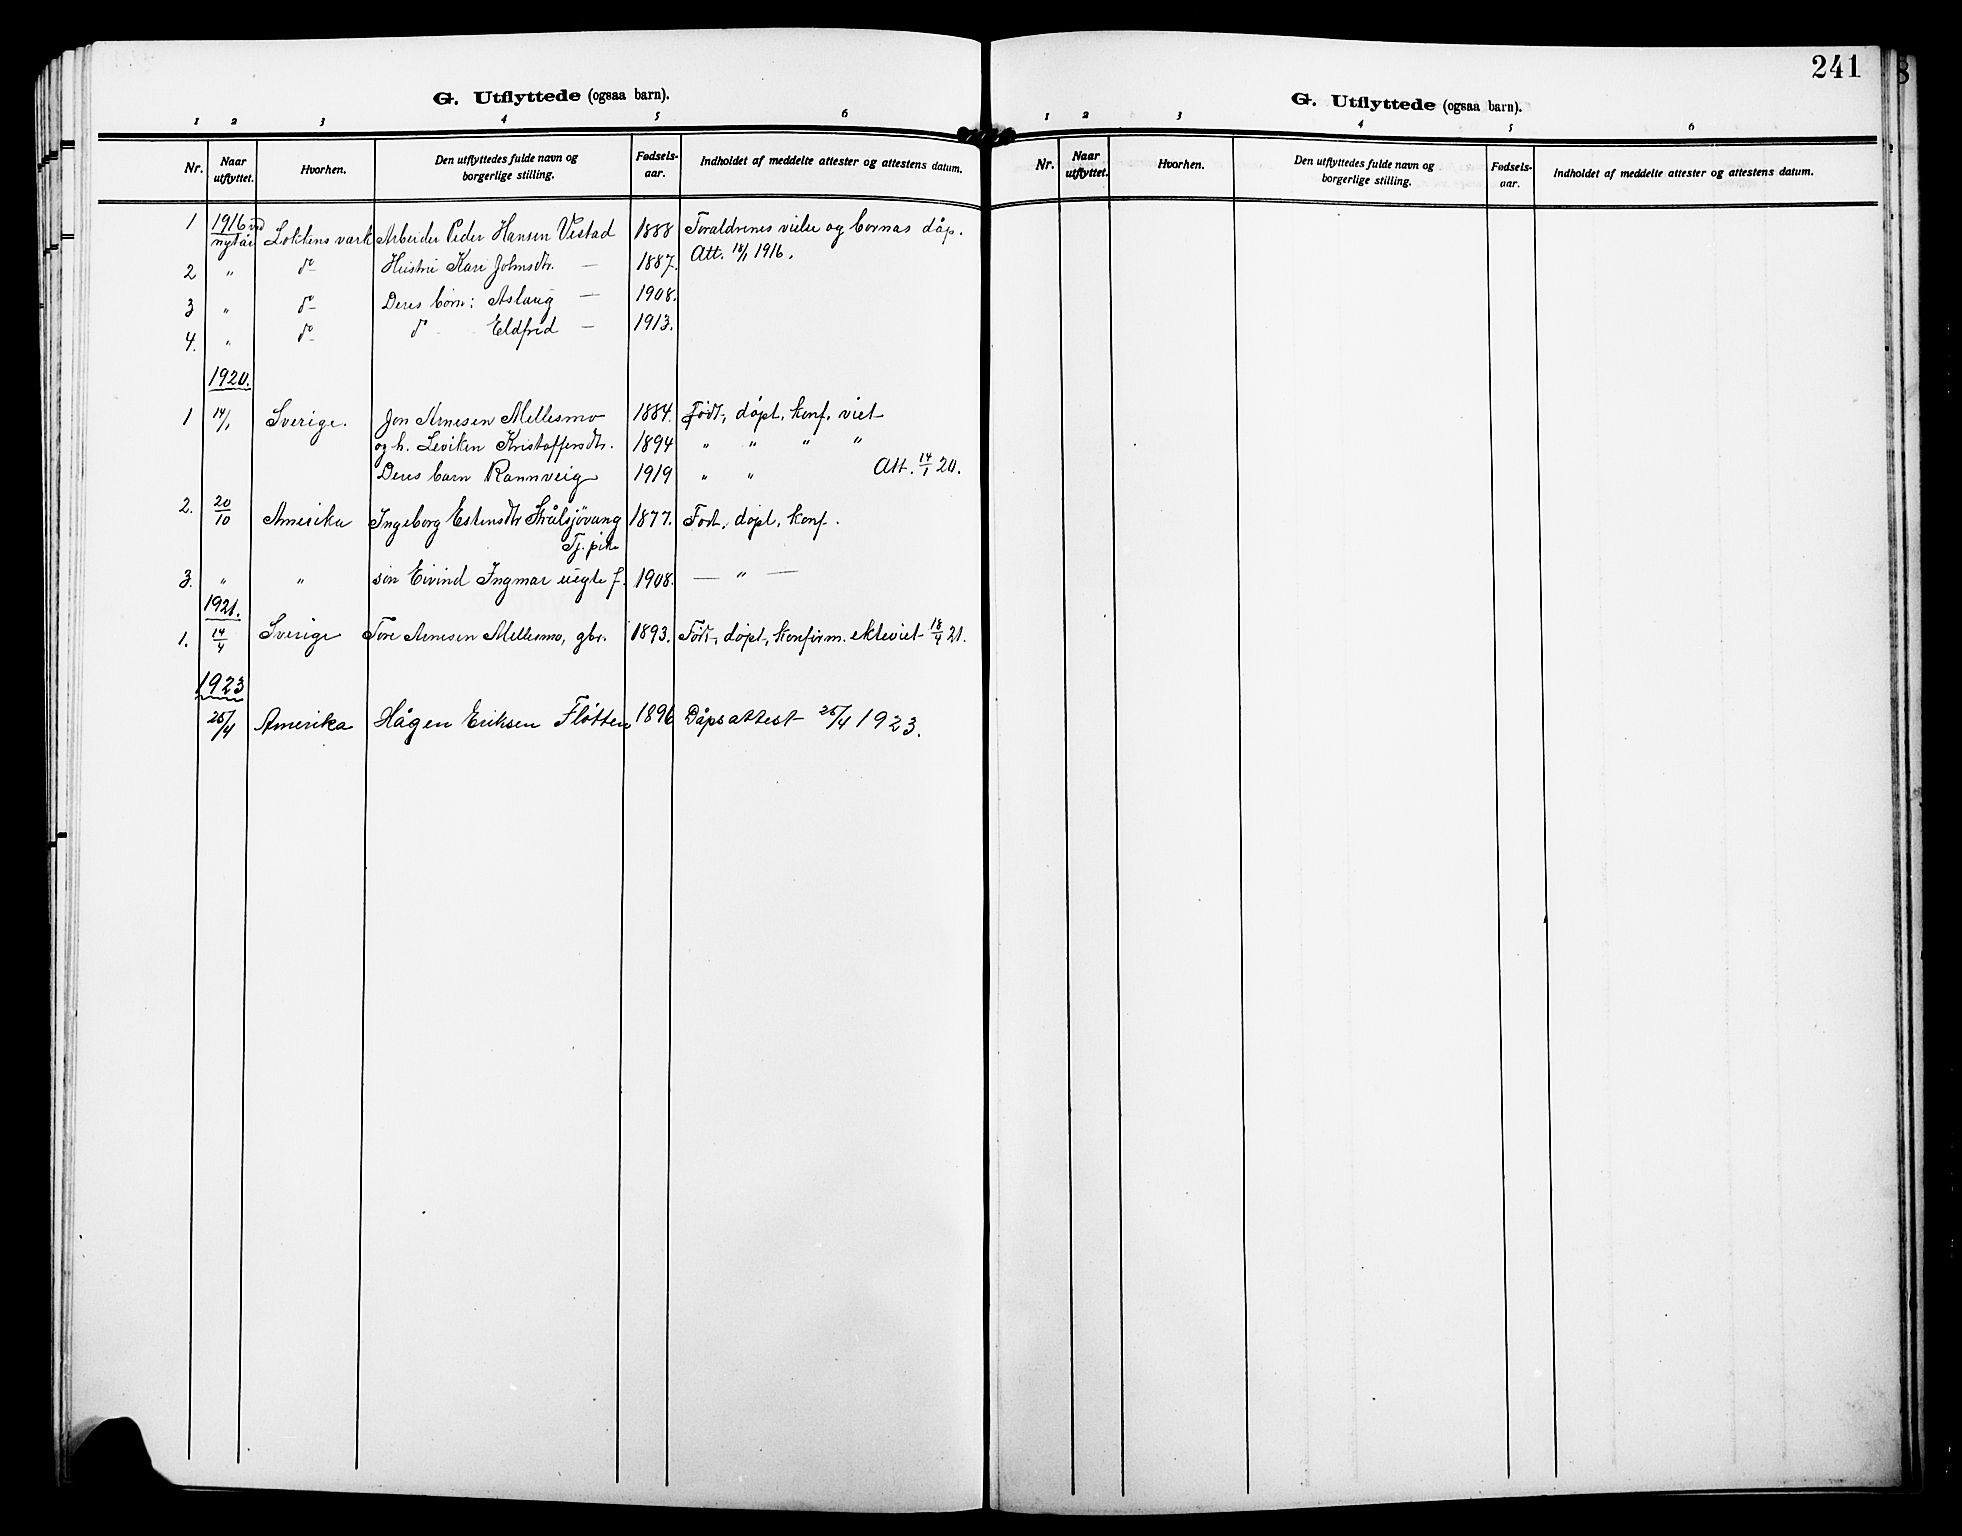 G. Utflyttede (ogsaa barn).
1 2 3 4 5 6
Nr. Naar utflyttet. Hvorhen. Den utflyttedes fulde navn og borgerlige stilling. Fødsels-aar. Indholdet af meddelte attester og attestens datum.
1 1916 ved nytår Løkkens værk Arbeider Peder Hansen Vestad 1888 Foraldrenes vielse og bornas dåp.
Att. 18/1 1916.
2 " do Hustru Kari Johnsdtr. — 1887.
3 " do Deres børn: Aslaug — 1908.
4. " do do Eldfrid — 1913.
1920.
1 14/1 Sverige. Jon Arnesen Mellesmo 1884. Født, døpt, konf, viet
og h. Leviken Kristoffersdtr. 1894 " " " "
Deres barn Rannveig 1919 " " Att. 14/1 20.
2. 20/10 Amerika Ingeborg Estensdtr Strålsjövang 1877. Født, døpt, konf.
Tj. pike
3. " " søn Eivind Ingmar uegte f. 1908. — " —
1921.
1. 14/4 Sverige Tore Arnesen Mellesmo, gbr. 1893. Født, døpt, konfirm. ekteviet 18/4 21.
1923
25/4 Amerika Hågen Eriksen Fløtten 1896 Dåpsattest 25/4 1923.
241
G. Utflyttede (ogsaa barn).
1 2 3 4 5 6
Nr. Naar utflyttet. Hvorhen. Den utflyttedes fulde navn og borgerlige stilling. Fødsels-aar. Indholdet af meddelte attester og attestens datum.